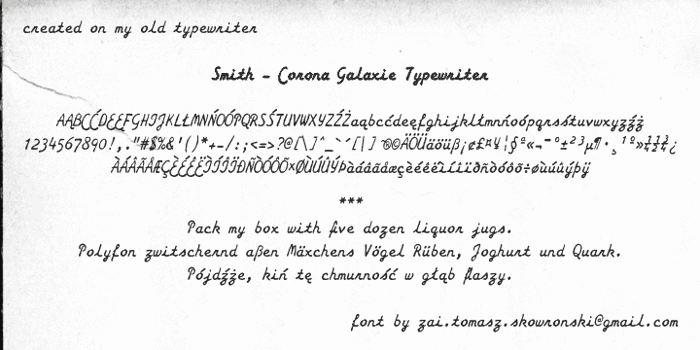 created on my old typewriter
Smith - Corona Galaxie Typewriter
AĄBCĆDEĘFGHIJKLŁMNŃOÓPQRSŚTUVWXYZŹŻaąbcćdeęfghijklłmnńoópqrsśtuvwxyzźż
1234567890!,."#$%&'()*+-/:;<=>?@[\]^_`´{|}
ÀÁÂÃÅÆÇÈÉÊËÌÍÎÏÐÑÒÓÔÕ×ØÙÚÛÝÞàáâãåæçèéêëìíîïðñòóôõ÷øùúûýþÿ
***
Pack my box with five dozen liquor jugs.
Polyfon zwitschernd aßen Mäxchens Vögel Rüben, Joghurt und Quark.
Pójdźże, kiń tę chmurność w głąb flaszy.
font by zai.tomasz.skowronski@gmail.com